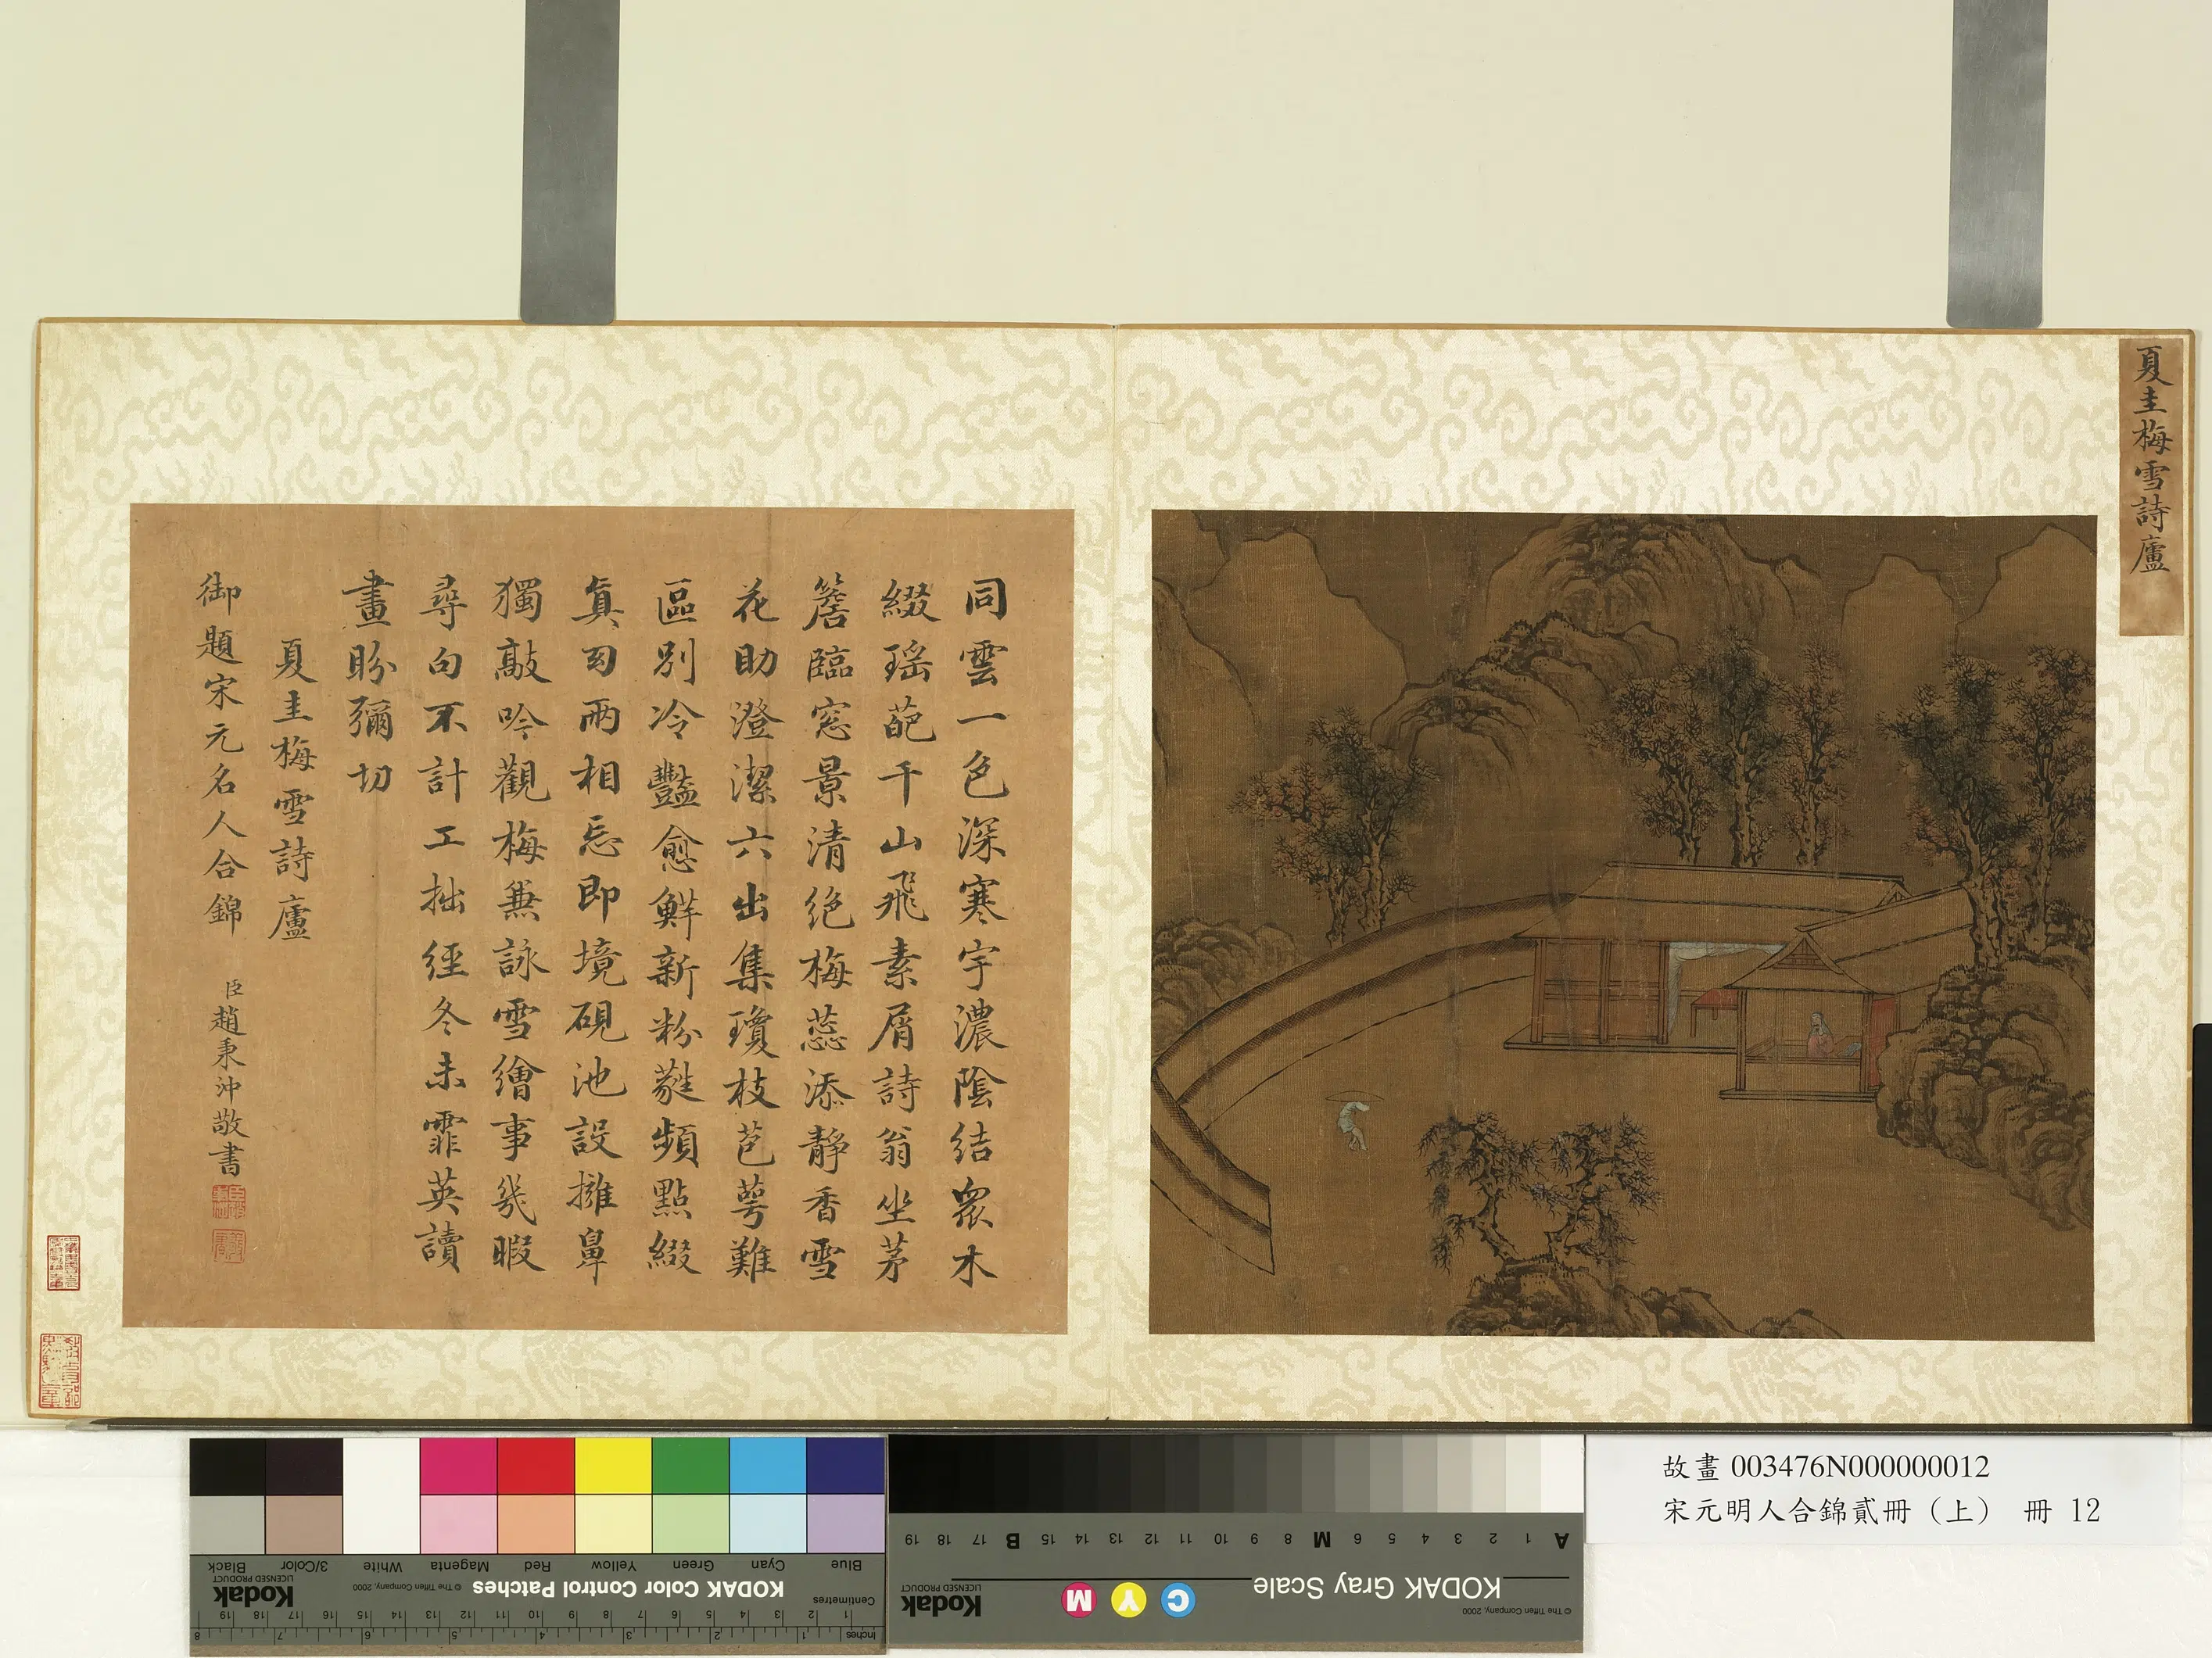 夏圭梅雪詩廬
同雲一色深寒宇濃陰結眾木
綴瑤葩千山飛素屑詩翁坐茅
簷臨窓景清絕梅蕊添靜香雪
花助澄潔六出集瓊枝苞萼難
區別冷豔愈鮮新粉蕤頻點綴
真同兩相忘即境硯池設擁鼻
獨敲吟觀梅兼詠雪繪事幾暇
尋句不計工拙經冬未霏英讀
畫盼彌切
夏圭梅雪詩廬
御題宋元名人合錦
臣趙秉沖敬書
故畫 003476N000000012
宋元明人合錦貳冊（上） 冊 12
Blue
Cyan
Green
Yellow
Red
Magenta
White
3/Color
Black
Centimetres
KODAK Color Control Patches
© The Tiffen Company, 2000
Kodak
LICENSED PRODUCT
Inches
1 2 3 4 5 6 7 8 9 10 11 12 13 14 15 16 17 18 19
1 2 3 4 5 6 7 8
A 1 2 3 4 5 6 M 8 9 10 11 12 13 14 15 B 17 18 19
KODAK Gray Scale
C Y M
Kodak
LICENSED PRODUCT
© The Tiffen Company, 2000